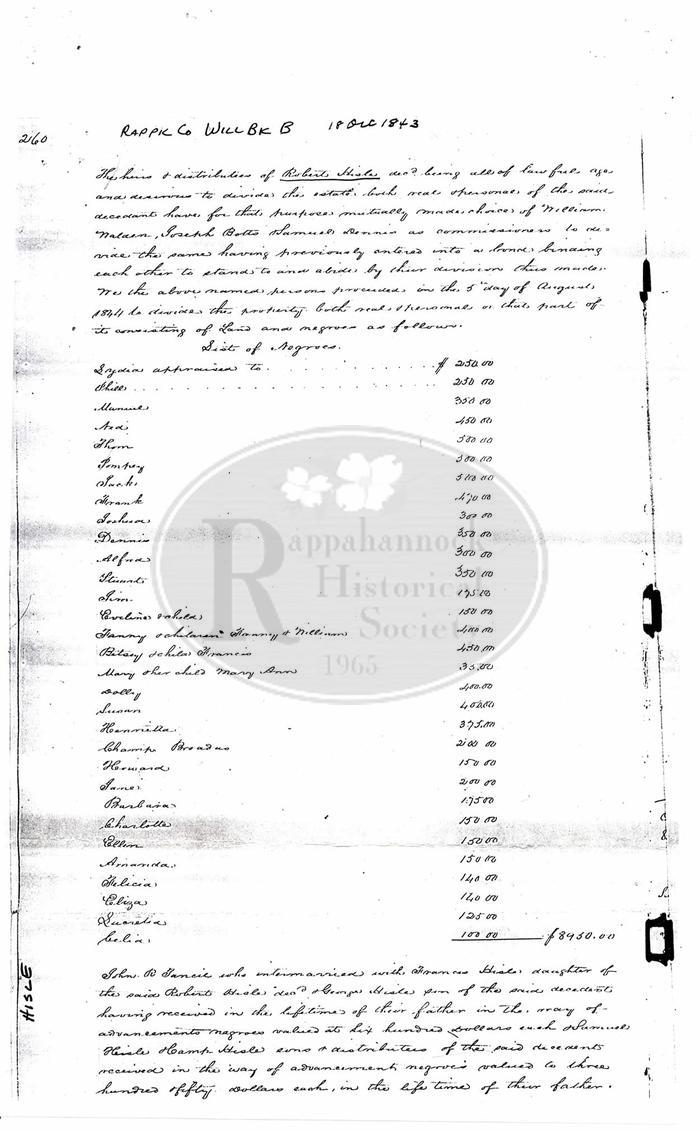 260
RAPPK CO WILL BK B 18 DEC 1843
The heirs & distributies of Robert Hisle decd. being all of lawful age
and desirous to divide the estate both real & personal of the said
decedant have for that purpose mutually made choice of William
Walden, Joseph Botts & Samuel Dennis as commissioners to de-
vide the same having previously entered into a bond binding
each other to stand to and abide by their division thus made.
We the above named persons proceeded in the 5th day of August
1844 to divide the property both real & personal or that part of
it consisting of Land and negroes as follows.
List of Negroes.
Lydia appraised to $ 250.00
Phill 250 00
Manuel 350 00
Ned 450 00
Thom 500 00
Pompey 500 00
Jack 500 00
Frank 470 00
Joshua 300 00
Dennis 350 00
Alfred 300 00
Stuart 350 00
Jim 175 00
Eveline & child 150 00
Fanny & children Fanny & William 400 00
Betsey & child Francis 450 00
Mary & her child Mary Ann 35.00
Dolly 400.00
Susan 400.00
Henrietta 375.00
Champ Broadus 200 00
Howard 150 00
Jane 200 00
Barbara 175 00
Charlotte 150 00
Ellen 150 00
Amanda 150 00
Felicia 140 00
Eliza 140 00
Lucretia 125 00
Celia 100 00 $8950.00
John R Tancil who intermarried with Frances Hisle daughter of
the said Robert Hisle decd & George Hisle son of the said decedent
having received in the lifetime of their father in the way of
advancements negroes valued at six hundred Dollars each & Samuel
Hisle & Camp Hisle sons & distributies of the said decedents
received in the way of advancement negroes valued to three
hundred & fifty Dollars each, in the life time of their father.
HISLE
Rappahannock
Historical
Society
1965